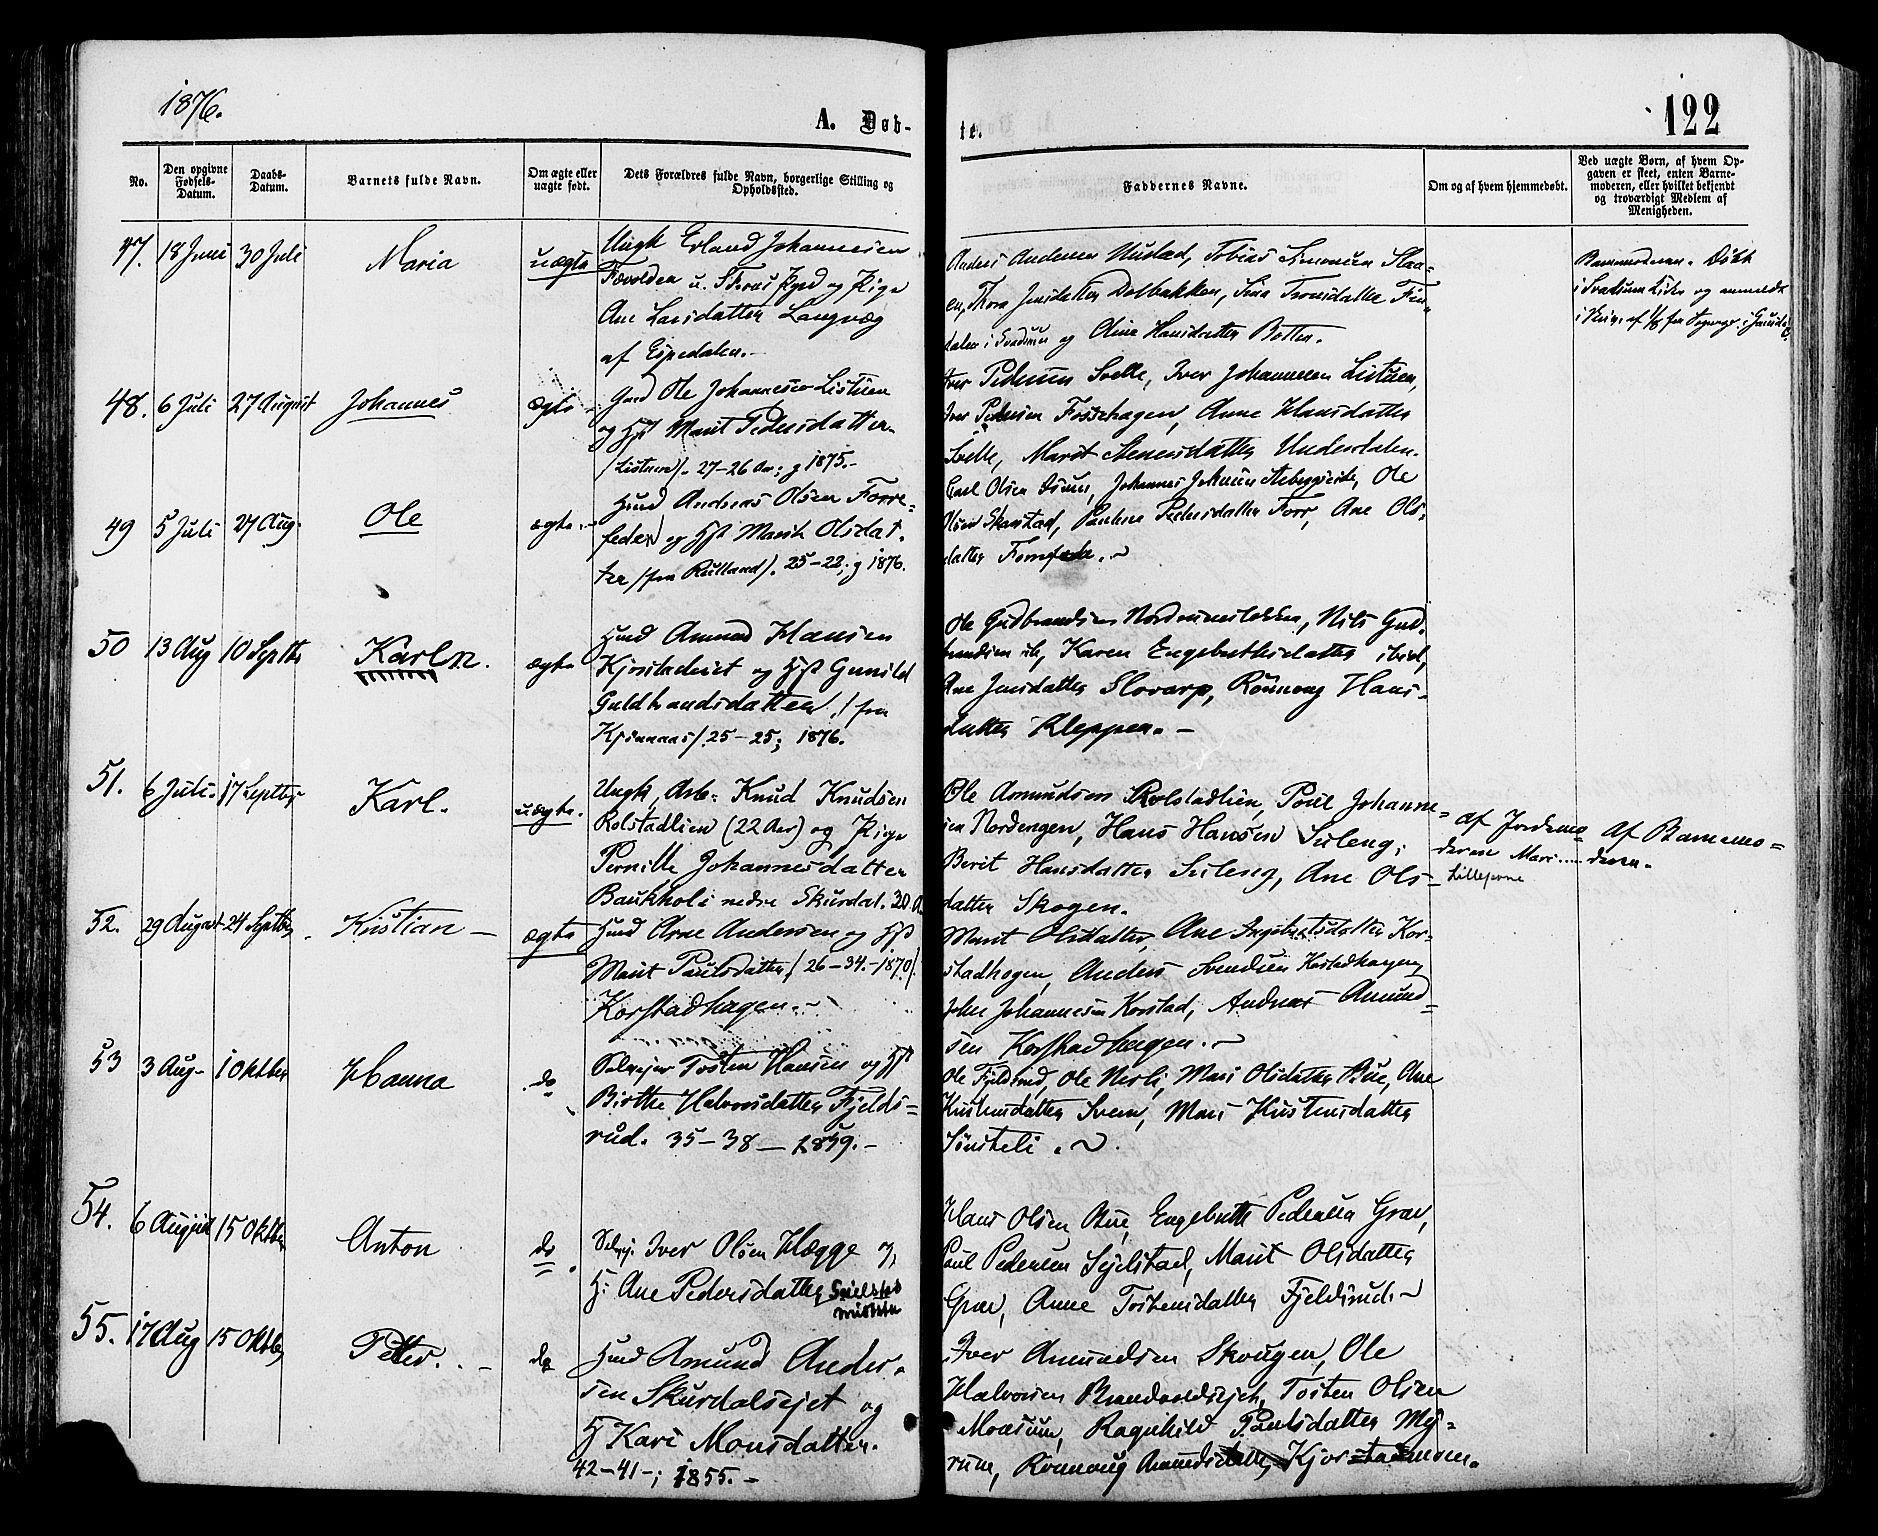 1876.
A. Døb-
te.
122
No.
Den opgivne Fødsels-Datum.
Daabs-Datum.
Barnets fulde Navn.
Om ægte eller uægte født.
Dets Forældres fulde Navn, borgerlige Stilling og Opholdssted.
Faddernes Navne.
Om og af hvem hjemmedøbt.
Ved uægte Børn, af hvem Op-
gaven er skeet, enten Barne-
moderen, eller hvilket bekjendt
og troværdigt Medlem af
Menigheden.
47. 18 Juni 30 Juli Maria uægte Ungk Erland Johannesen
og Pige
Ane Larsdatter Langvæg
af Espedalen.-
Anders Andersen Tobias Simonsen Slaa-
en, Thora Jensdatter Dalbakken,
og Oline Hansdatter Botten.
Barnmoderen. Døbt
48. 6 Juli 27 August Johannes ægte Gmd Ole Johannesen Listuen
og Hst Marit Pedersdatter
/Listuen/. 27-26 Aar; g 1875.-
Iver Pedersen Svelle, Iver Johannesen Listuen,
Iver Pedersen Fossehagen, Anne Hansdatter
Svelle, Marit Steensdatter Undersdalen.
49 5 Juli 27 Aug. Ole ægte.- Husmd Andreas Olsen Forre-
feder og Hst Marit Olsdat-
ter /fra Rulland/. 25-22; g 1876.
Carl Olsen Johannes Ole
Olsen Skarstad, Pauline Pedersdatter Forr, Ane Ols-
datter
50 13 Aug 10 Septbr Karl. ægte Husmd Amund Hansen
og Hst Gunild
Guldbrandsdatter /fra
25-25; 1876.
Ole Gudbrandsen Nils Gud-
brandsen ib, Karen Engebrethsdatter ibid,
Ane Jensdatter Slovarp, Rønnaug Hans-
datter Kleppen. -
51. 6 Juli. 17 Septbr Karl. uægte. Ungk, Arb. Knud Knudsen
Rolstadlien (22 Aar) og Pige
Pernille Johannesdatter
Baukhol i nedre Skurdal. 20 A.
Ole Amundsen Rolstadlien, Poul Johanne-
sen Nordengen, Hans Hansen Suleng,
Berit Hansdatter Suleng, Ane Ols-
datter Skogen.
af Jordemo-
deren Mari
Af Barnemo-
deren.
52. 29 August 24 Septbr Kristian - ægte Husmd Arne Andersen og Hst
Marit Paulsdatter /26-34.-1870/.
Korstadhagen.
Marit Olsdatter, Ane Ingebretsdatter Kor-
stadhagen, Anders Svendsen Korstadhagen,
John Johannesen Korstad, Andreas Amund-
sen Korstadhagen.
53 3 Aug- 1 Oktber Hanna do Selvejer Tosten Hansen og Hst
Birthe Halvorsdatter Fjelds-
rud. 35-38 - 1859.-
Ole Fjeldsrud, Ole Nerli, Mari Olsdatter Bue, Ane
Kristensdatter Sveen, Mari Kristensdatter
Sønsteli.
54. 6 August 15 Oktber Anton do. Selvej. Iver Olsen Hægge og
H: Ane Pedersdatter
Hans Olsen Bue, Engebrette Pedersen Grav,
Paul Pedersen Sejelstad, Marit Olsdatter
Grav, Anne Tostensdatter Fjeldsrud.
55. 17 Aug 15 Oktbr Petter. - do Husmd Amund Ander-
sen Skurdalsejet og
H Kari Monsdatter.
42-41-; 1855.-
Iver Amundsen Skougen, Ole
Halvorsen Tosten Olsen
Moasum, Ragnhild Paulsdatter My-
rum, Rønnaug Amundsdatter,